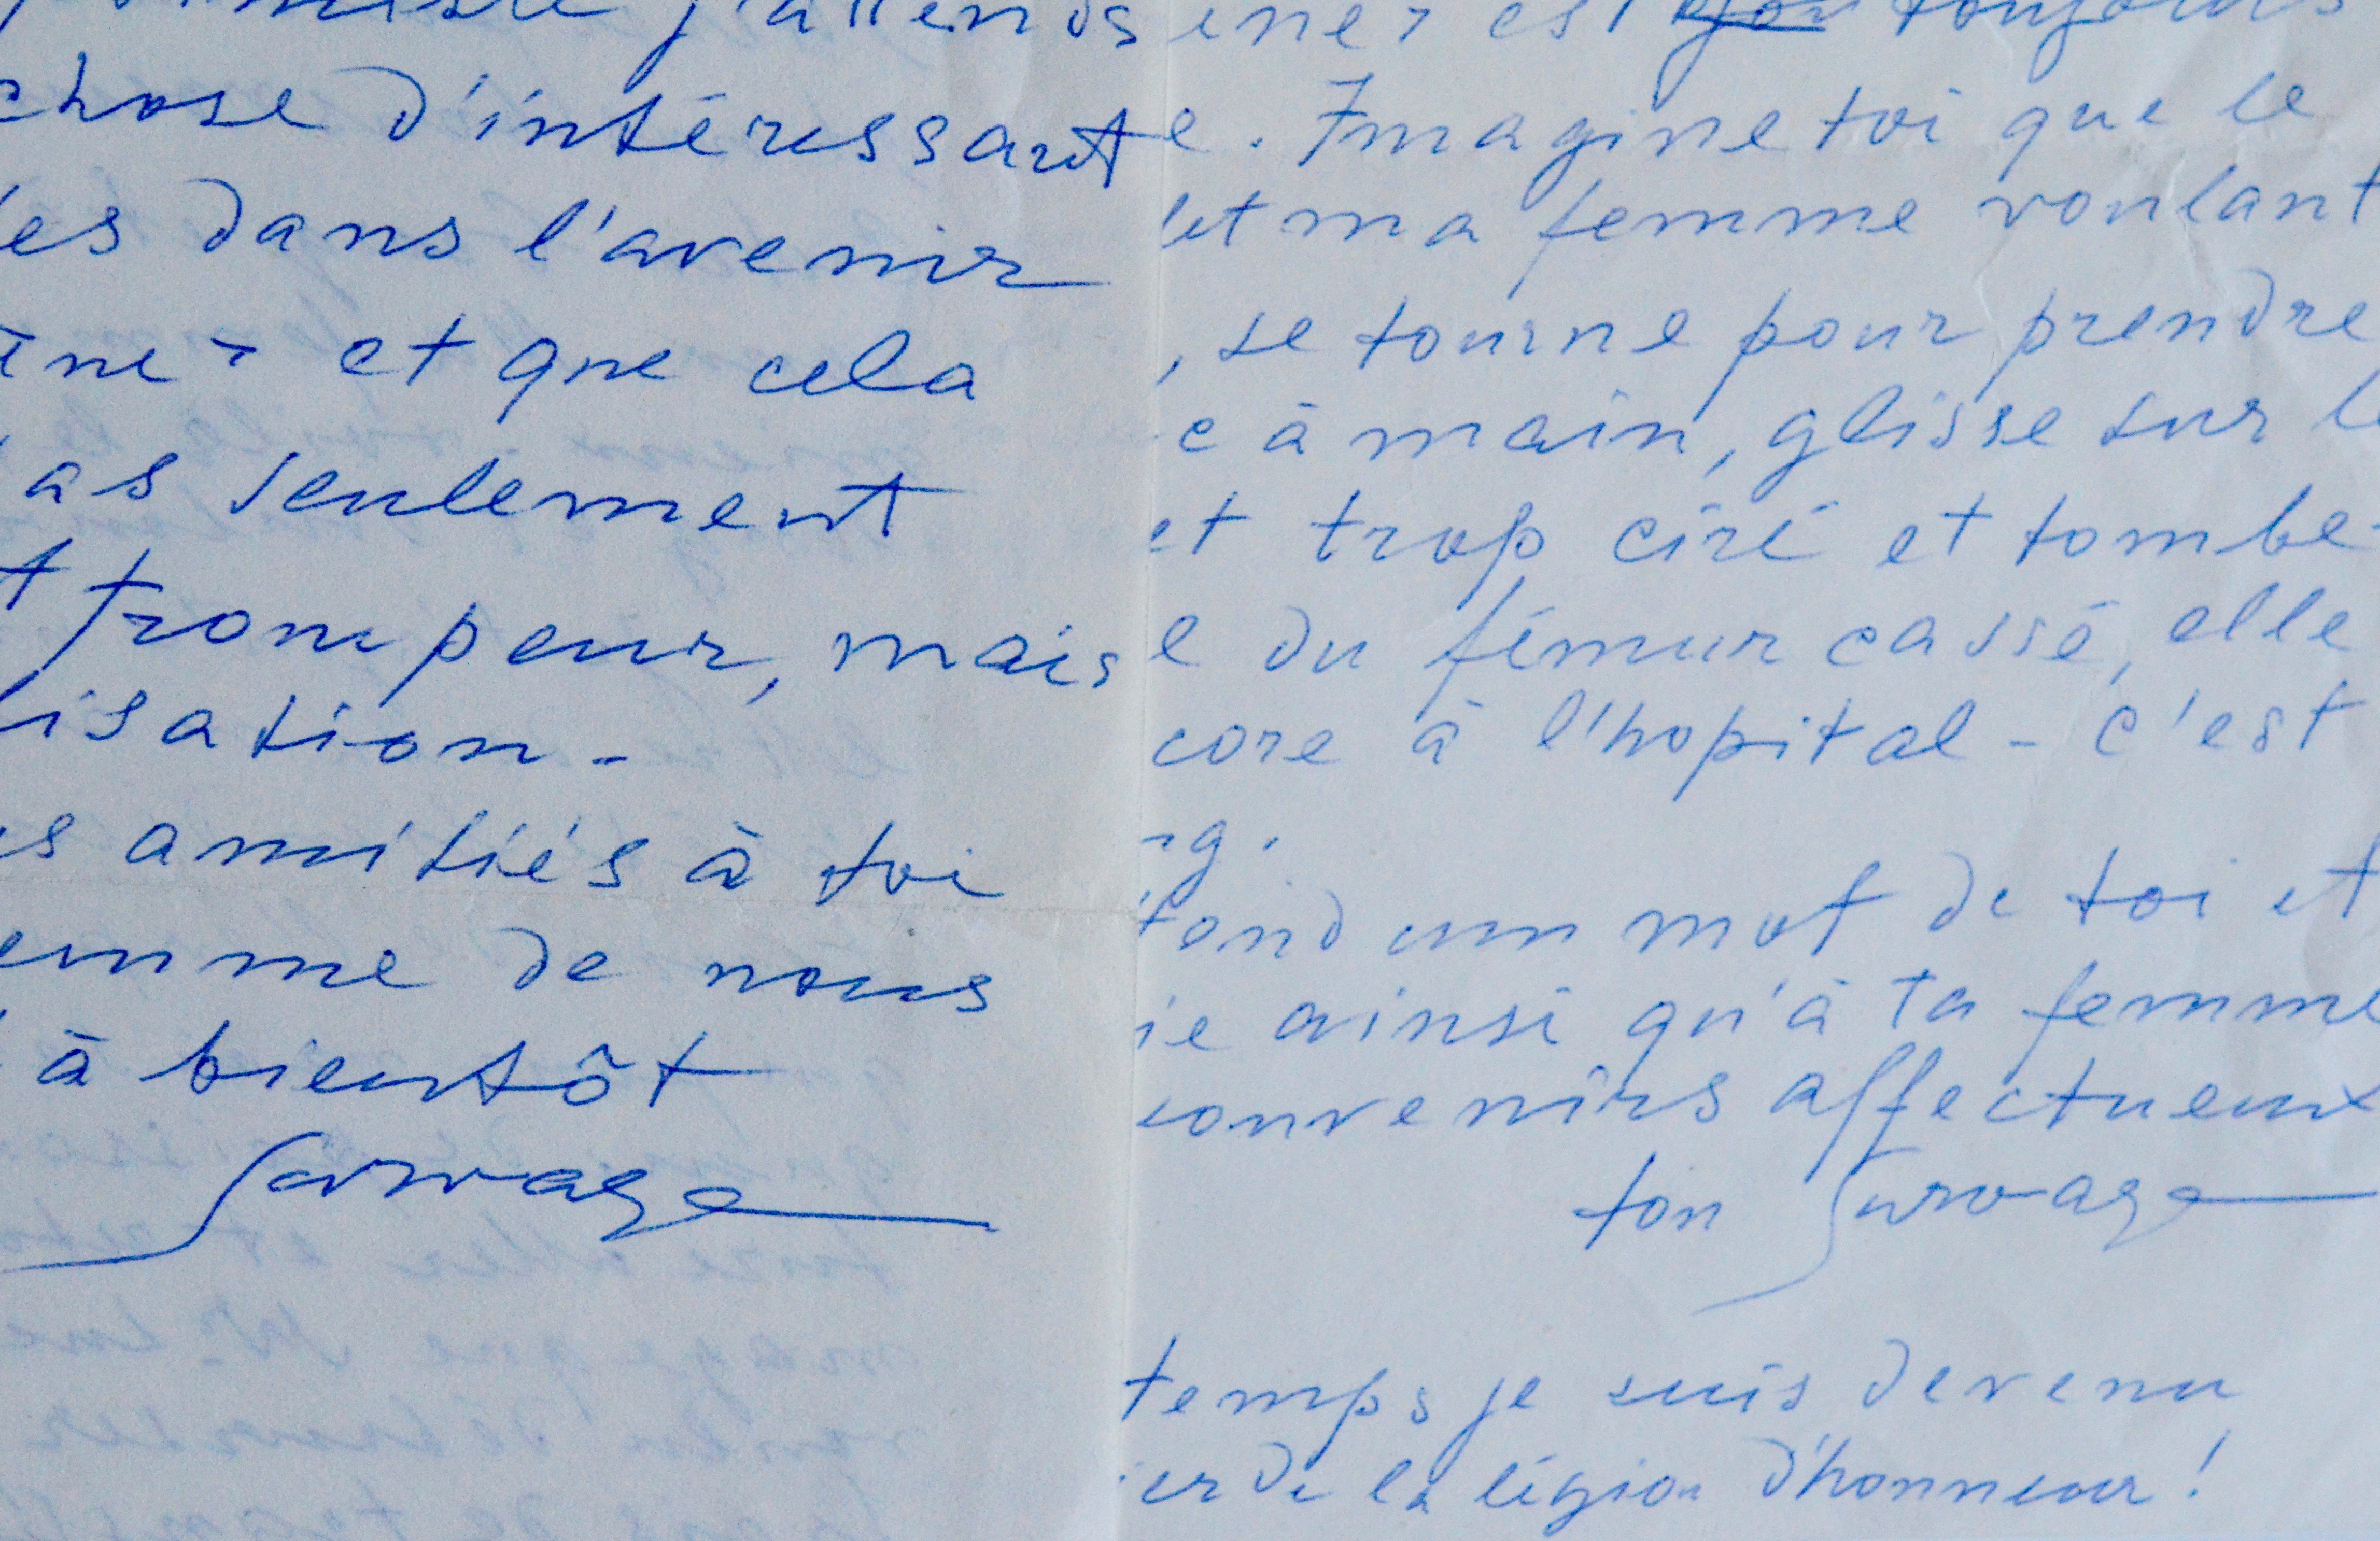 j'attends
chose d'intéressant
es dans l'avenir
et que cela
as seulement
trompeur, mais
isation -
s amitiés à toi
emme de nous
à bientôt
Survage
est toujours
e. Imagine toi que le
et ma femme voulant
, se tourne pour prendre
c à main, glisse sur le
et trop ciré et tombe -
e du fémur cassé, elle
core à l'hopital - c'est
ng.
tend un mot de toi et
ie ainsi qu'à ta femme
souvenirs affectueux
ton Survage
temps je suis devenu
er de la légion d'honneur !